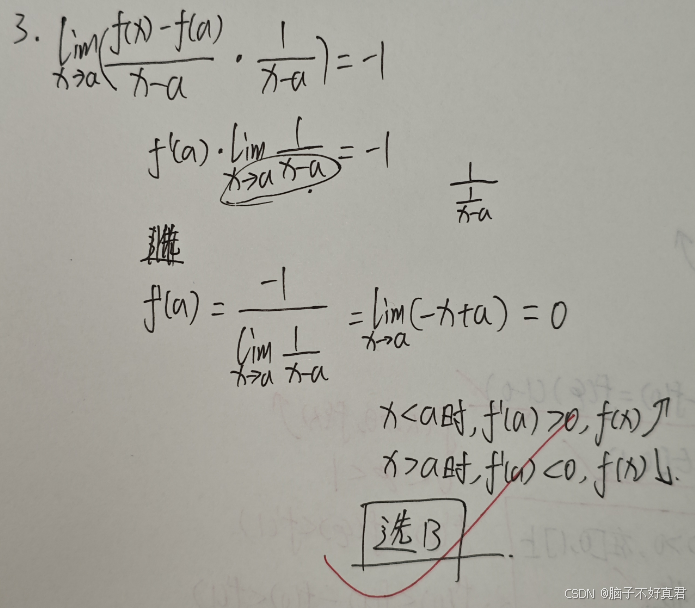 3. lim x→a (f(x)-f(a)/x-a · 1/x-a) = -1
f'(a) · lim x→a 1/x-a = -1
1/(1/x-a)
f'(a) = -1/(lim x→a 1/x-a) = lim x→a (-x+a) = 0
x<a时, f'(a)>0, f(x)↗
x>a时, f'(a)<0, f(x)↓.
选B
CSDN @脑子不好真君